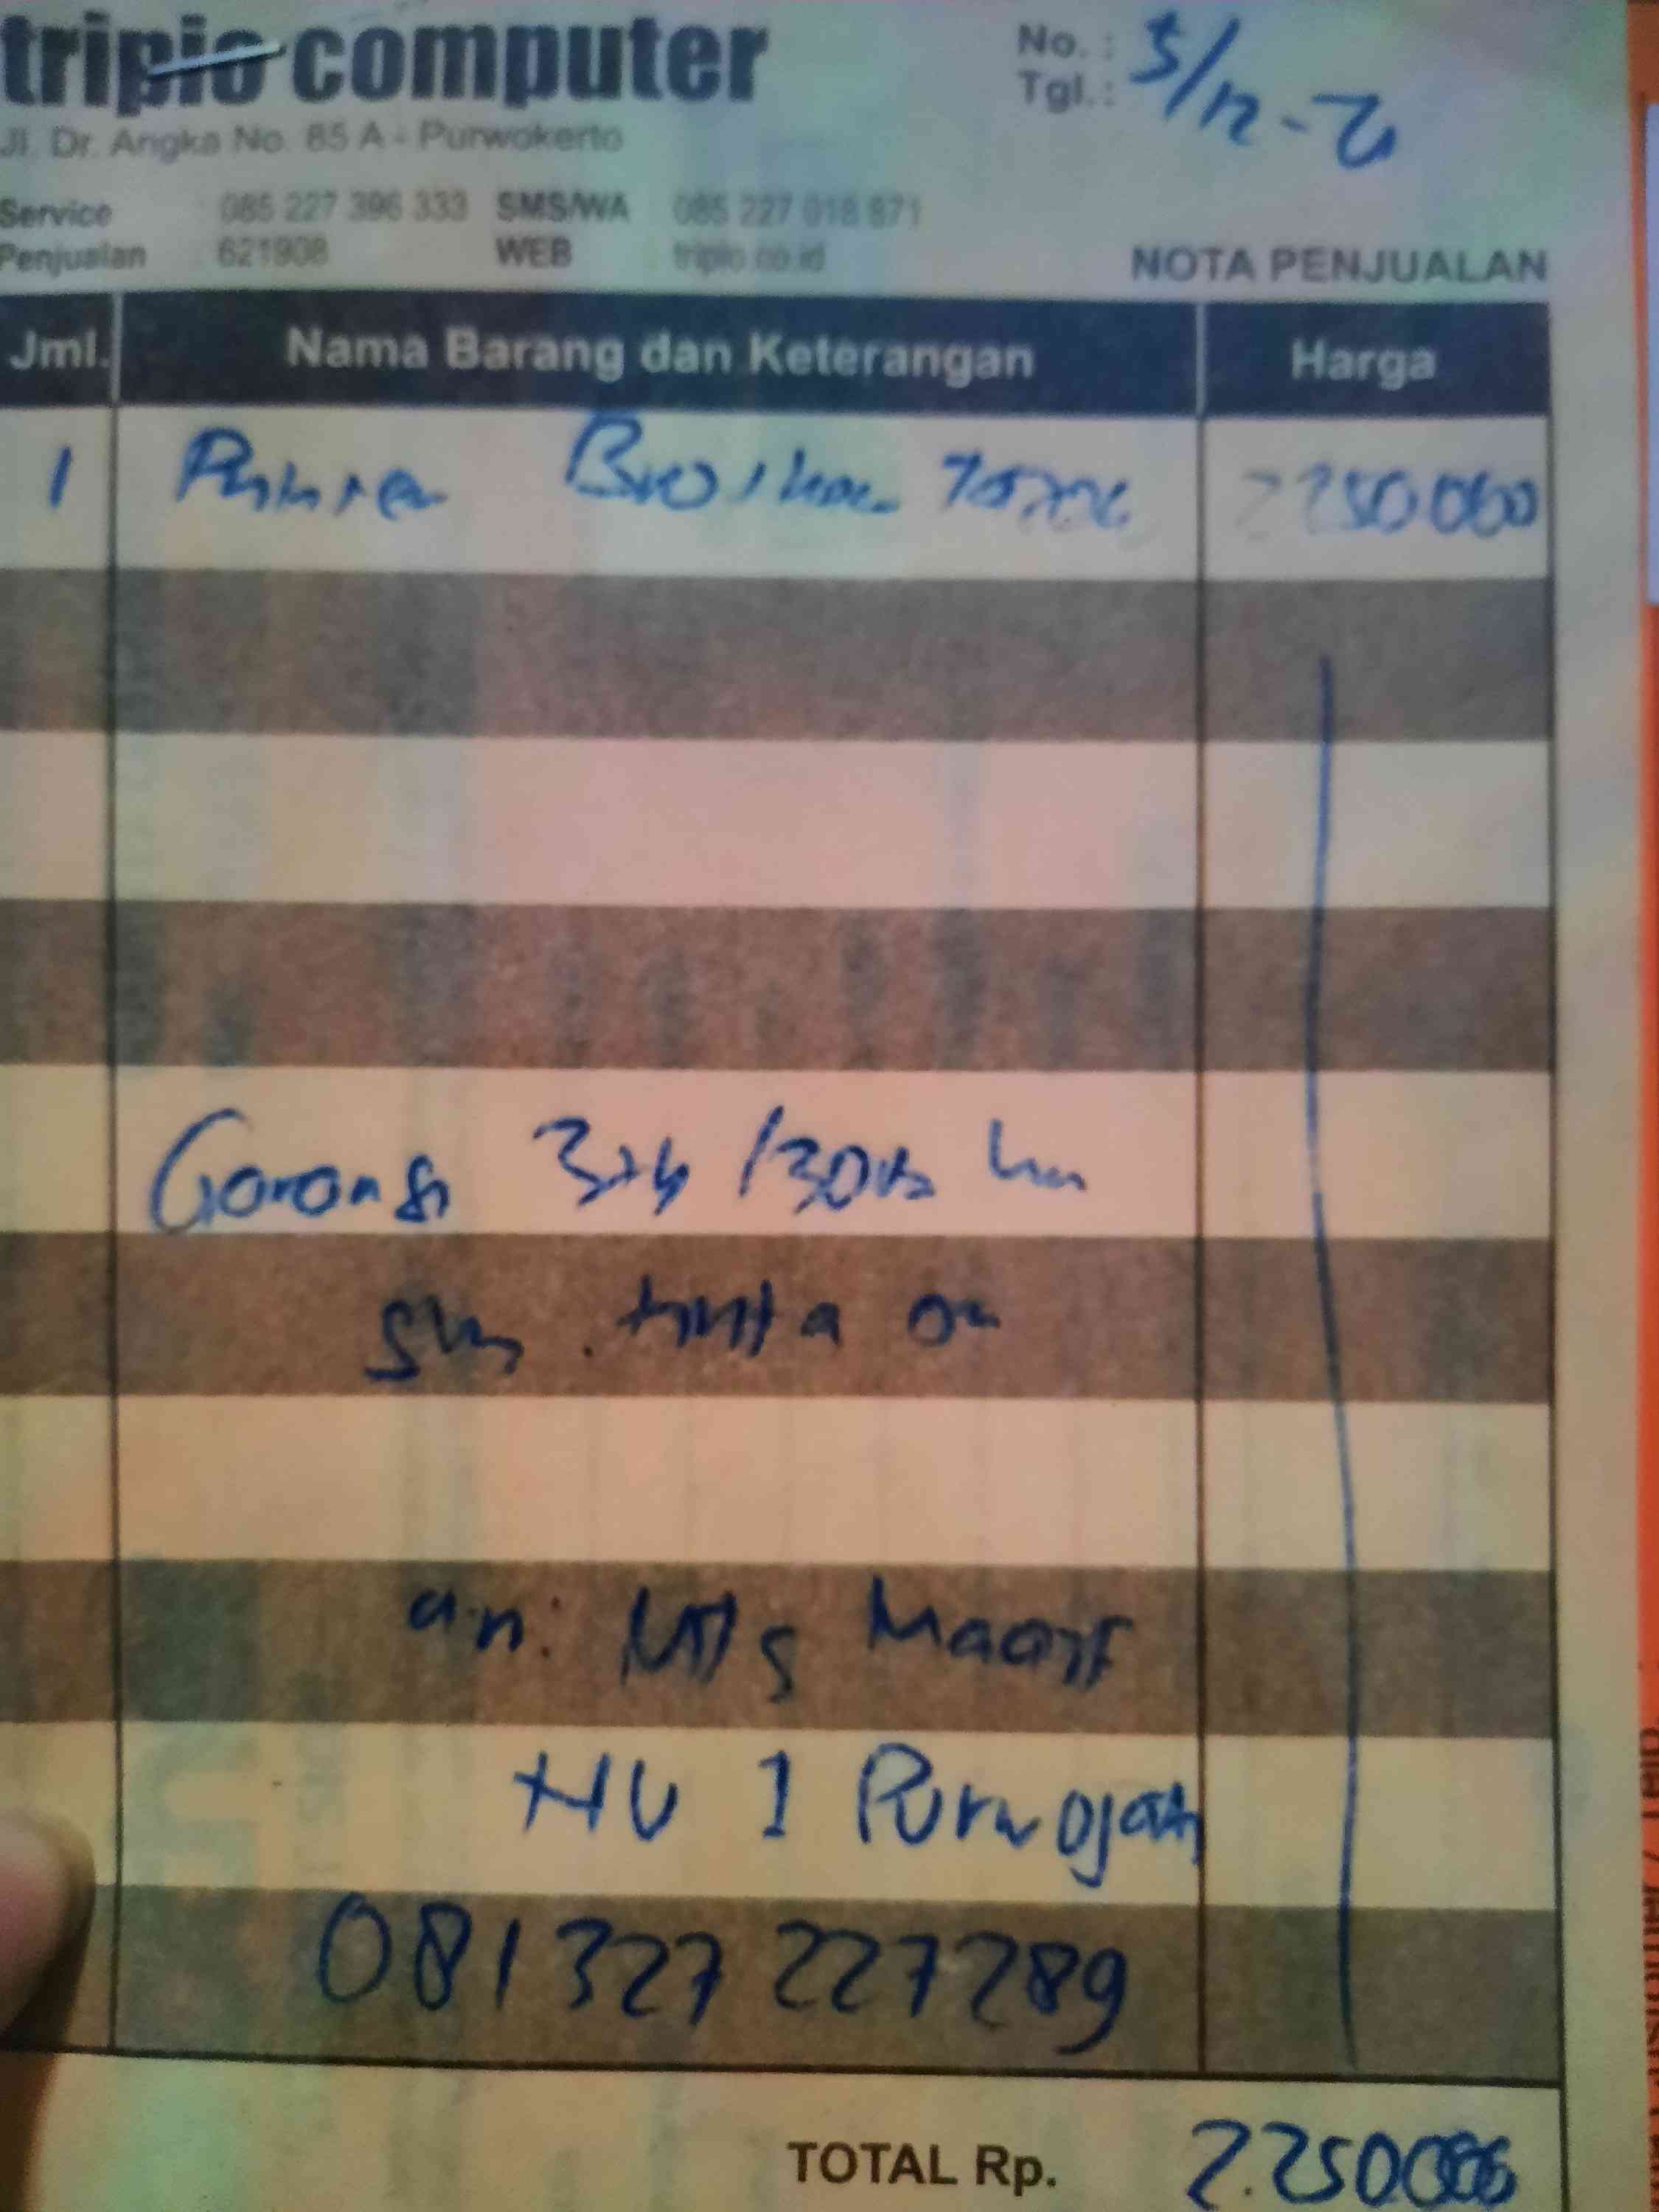 tripio computer
No. :
Tgl. : 5/12-
Jl. Dr. Angka No. 85 A - Purwokerto
Service 085 227 396 333 SMS/WA 085 227 018 871
Penjualan 621908 WEB tripio.co.id
NOTA PENJUALAN
Jml. Nama Barang dan Keterangan Harga
1 Printer Brother 2250000
Garansi
tinta
a.n: MTs Maarif
NU 1 Purwojati
081327 227289
TOTAL Rp. 2.250.000